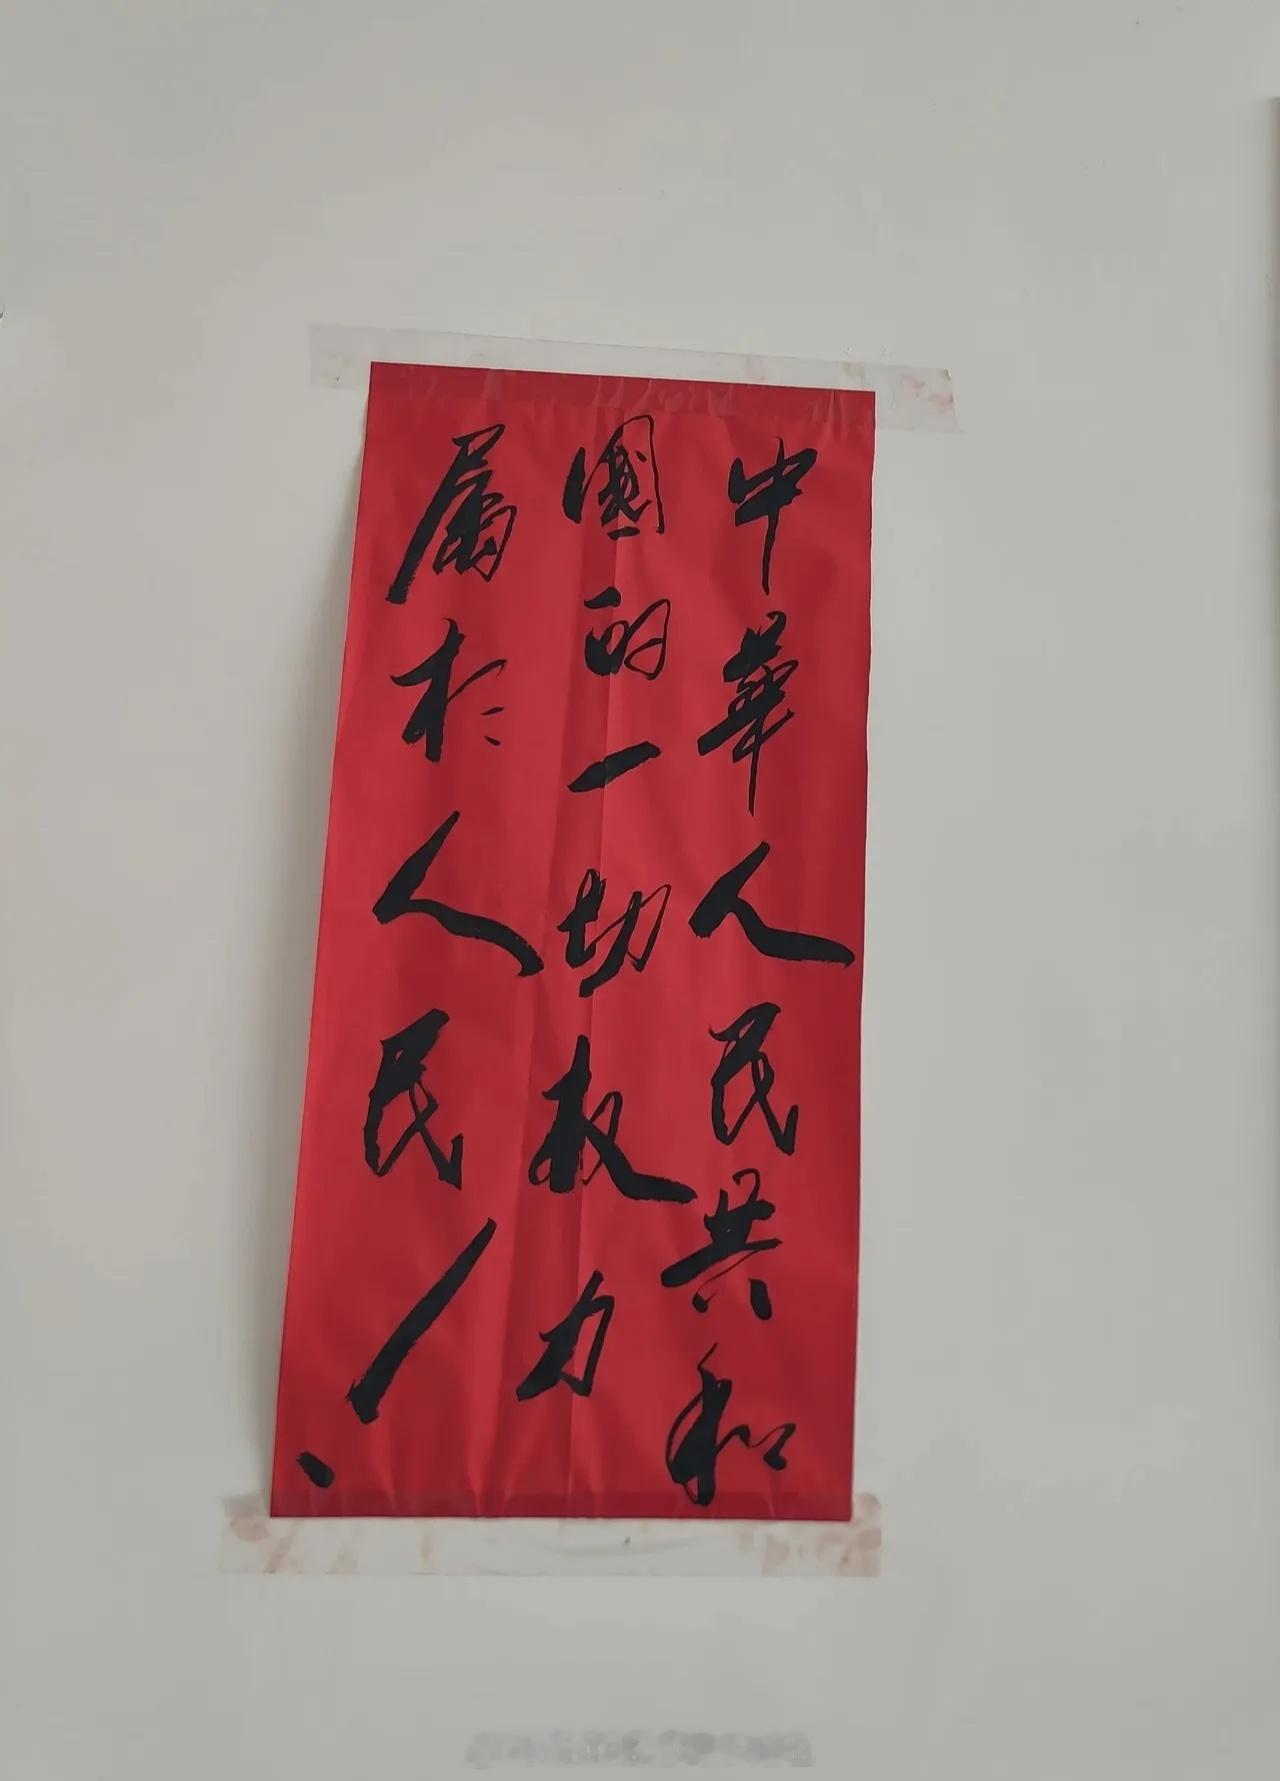 中華人民共和
國的一切权力
属於人民！